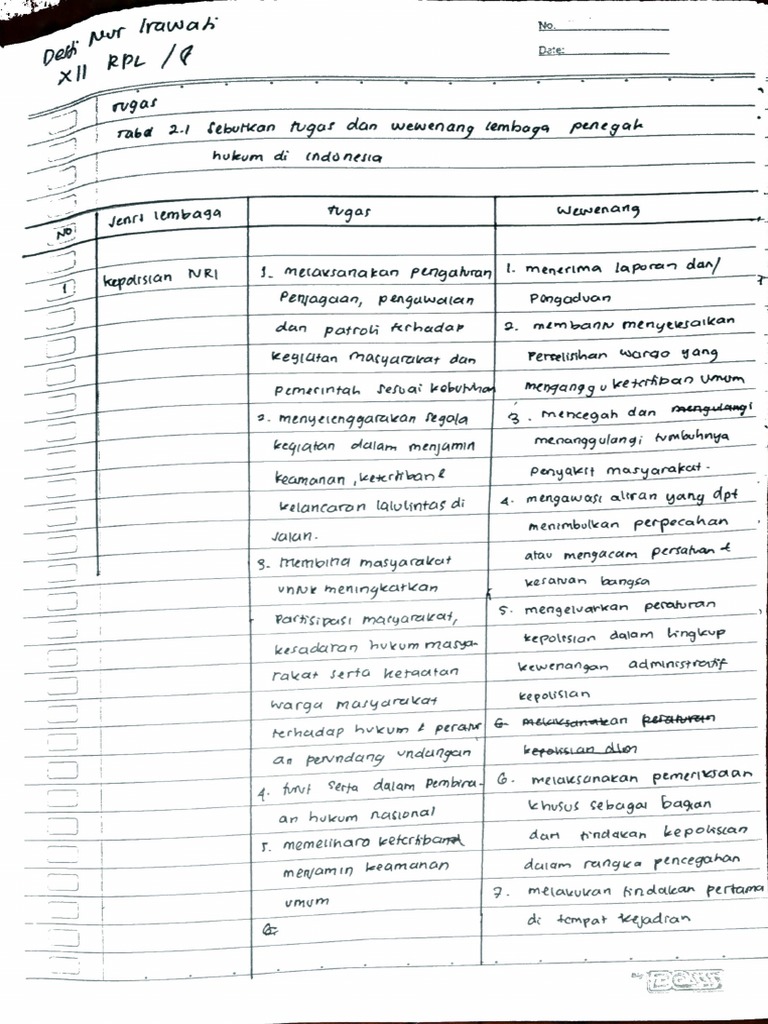 Desti Nur Irawati
XII RPL /
No.
Date:
Tugas
Tabel 2.1 Sebutkan tugas dan wewenang lembaga penegah
hukum di indonesia
NO
Jenis lembaga
Tugas
Wewenang
1
Kepolisian NRI
1. melaksanakan pengaturan
Penjagaan, pengawalan
dan patroli terhadap
kegiatan masyarakat dan
pemerintah sesuai kebutuhan
2. menyelenggarakan segala
kegiatan dalam menjamin
keamanan, ketertiban &
kelancaran lalulintas di
jalan.
3. Membina masyarakat
untuk meningkatkan
Partisipasi masyarakat,
kesadaran hukum masya-
rakat serta ketaatan
warga masyarakat
terhadap hukum & peratur
an perundang undangan
4. turut serta dalam Pembina-
an hukum nasional
5. memelihara ketertiban
menjamin keamanan
umum
6.
1. menerima laporan dan/
Pengaduan
2. membantu menyelesaikan
Perselisihan warga yang
menganggu ketertiban umum
3. mencegah dan mengulangi
menanggulangi tumbuhnya
penyakit masyarakat.
4. mengawasi aliran yang dpt
menimbulkan perpecahan
atau mengacam persatuan &
kesatuan bangsa
5. mengeluarkan peraturan
kepolisian dalam lingkup
kewenangan administratif
kepolisian
6. melaksanakan peraturan
kepolisian dlm
6. melaksanakan pemeriksaan
khusus sebagai bagian
dari tindakan kepolisian
dalam rangka pencegahan
7. melakukan tindakan pertama
di tempat kejadian